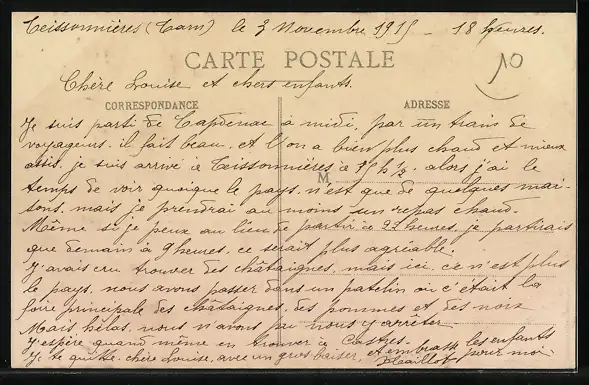 Teissonnières (Tarn) le 3 Novembre 1915 - 18 heures.
CARTE POSTALE
10
Chère Louise et chers enfants.
CORRESPONDANCE
ADRESSE
Je suis parti de Capdenac à midi, par un train de
voyageurs. il fait beau. et l'on a bien plus chaud et mieux
assis. je suis arrivé à Teissonnières à 17h ½. alors j'ai le
M
temps de voir quoique le pays n'est que de quelques mai-
sons. mais je prendrai au moins un repas chaud.
Même si je peux au lieu de partir à 22 heures. je partirais
que demain à 9 heures. ce serait plus agréable.
J'avais cru trouver des châtaignes, mais ici, ce n'est plus
le pays. nous avons passer dans un patelin où c'était la
foire principale des châtaignes, des pommes et des noix
Mais, hélas, nous n'avons pu nous y arrêter.
J'espère quand même en trouver à Castres.
Je te quitte chère Louise, avec un gros baiser, et embrasse les enfants
pour moi.